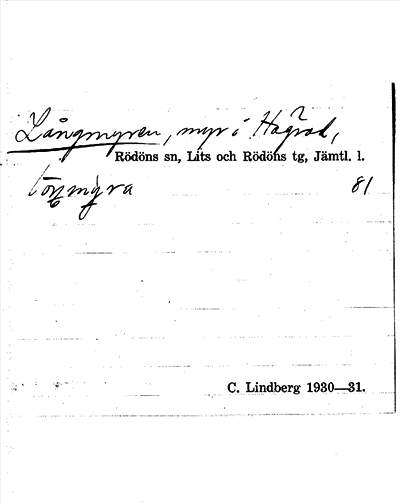 Långmyren, myr i
Rödöns sn, Lits och Rödöns tg, Jämtl. l.
81
C. Lindberg 1930—31.